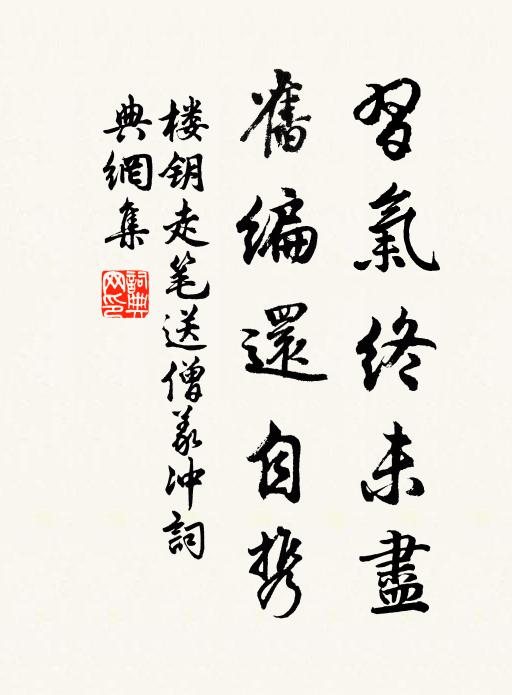 習氣終未盡
舊編還自携
楼钥走笔送僧義冲詞
典網集
詞典網印